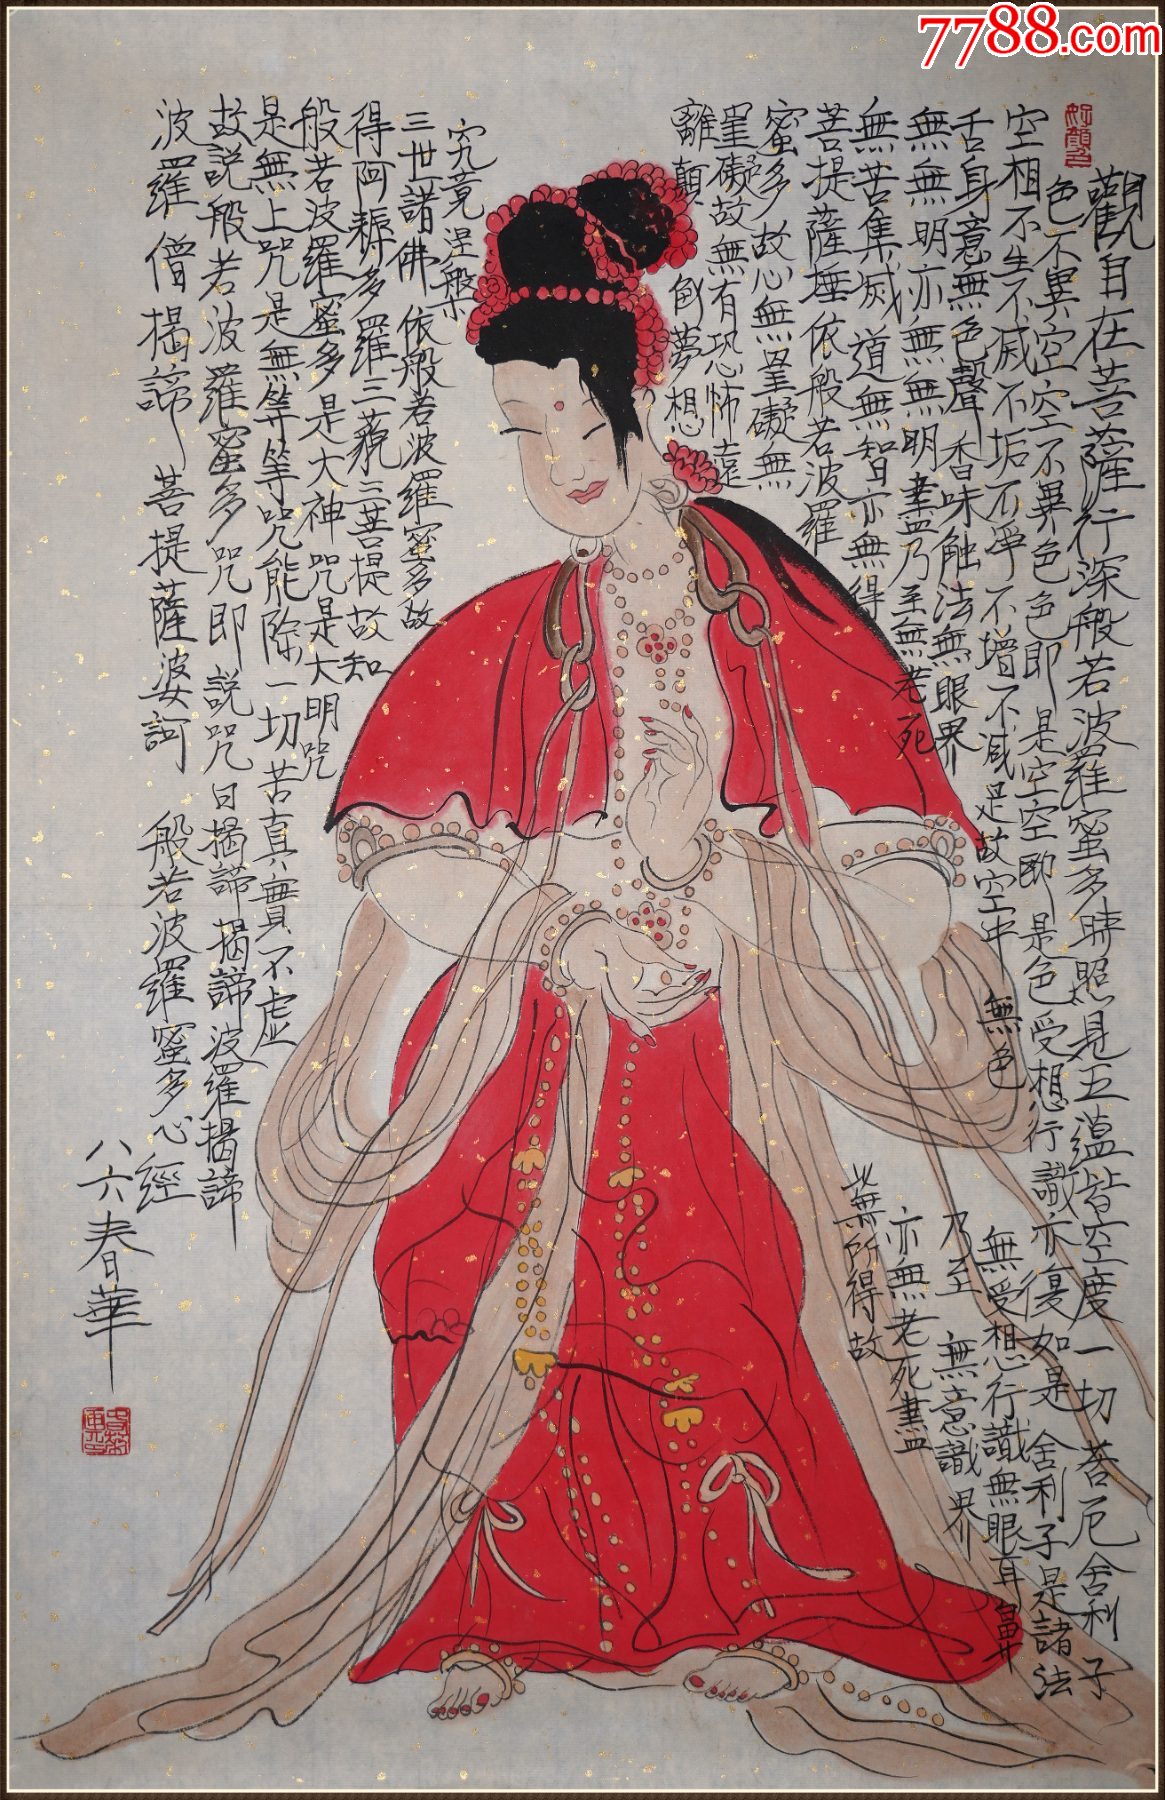 7788.com
好顏色
觀自在菩薩行深般若波羅蜜多時照見五蘊皆空度一切苦厄舍利子
色不異空空不異色色即是空空即是色受想行識亦復如是舍利子是諸法
空相不生不滅不垢不淨不增不減是故空中無色無受想行識無眼耳鼻
舌身意無色聲香味觸法無眼界乃至無意識界
無無明亦無無明盡乃至無老死亦無老死盡
無苦集滅道無智亦無得以無所得故
菩提薩埵依般若波羅
蜜多故心無罣礙無
罣礙故無有恐怖遠
離顛倒夢想
究竟涅槃
三世諸佛依般若波羅蜜多故
得阿耨多羅三藐三菩提故知
般若波羅蜜多是大神咒是大明咒
是無上咒是無等等咒能除一切苦真實不虛
故説般若波羅蜜多咒即説咒曰揭諦揭諦波羅揭諦
波羅僧揭諦菩提薩婆訶 般若波羅蜜多心經
八六春華